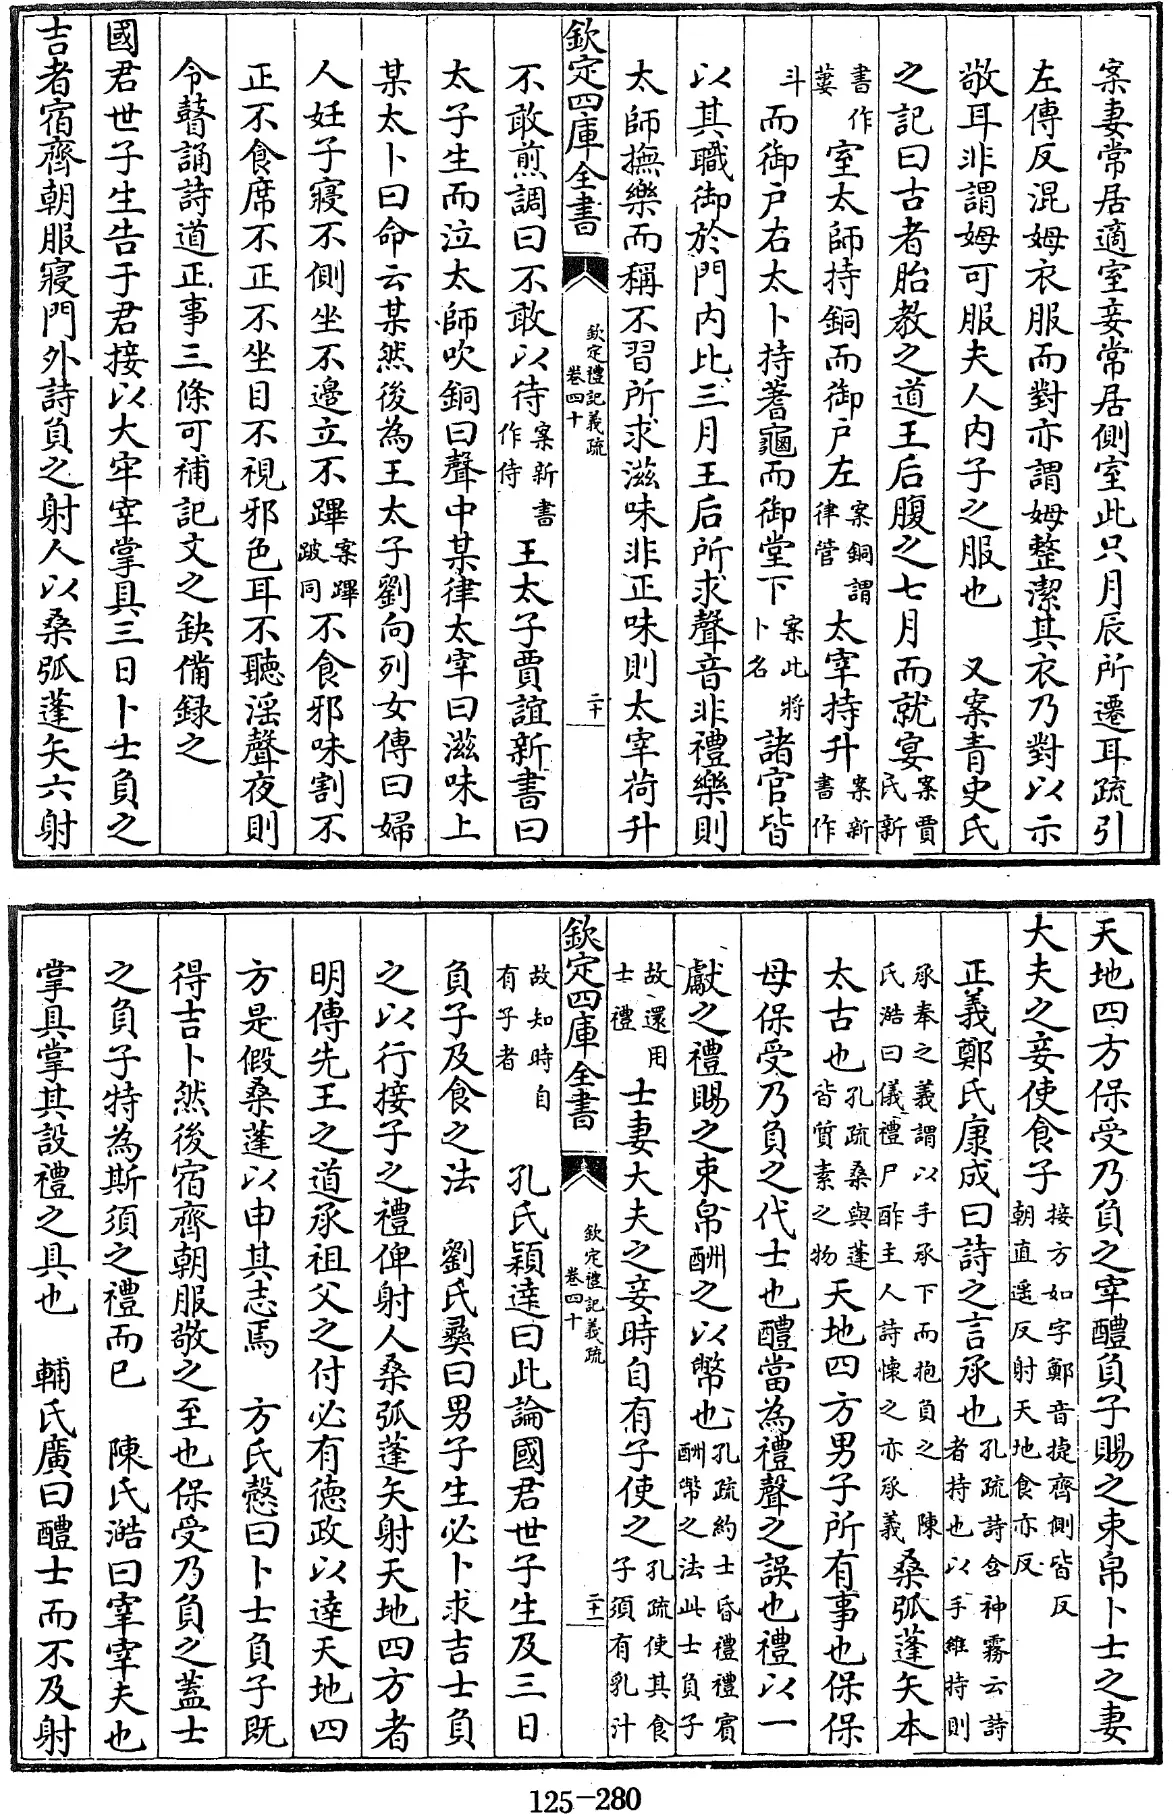 案妻常居適室妾常居側室此只月辰所遷耳疏引
左傳反混姆衣服而對亦謂姆整潔其衣乃對以示
敬耳非謂姆可服夫人内子之服也　又案青史氏
之記曰古者胎教之道王后腹之七月而就宴案賈氏新
書作蔞室太師持銅而御户左案銅謂律管太宰持升案新書作
斗而御户右太卜持蓍龜而御堂下案此將卜名諸官皆
以其職御於門内比三月王后所求聲音非禮樂則
太師撫樂而稱不習所求滋味非正味則太宰荷升
欽定四庫全書
欽定禮記義疏
卷四十
二十
不敢煎調曰不敢以待案新書作侍王太子賈誼新書曰
太子生而泣太師吹銅曰聲中某律太宰曰滋味上
某太卜曰命云某然後為王太子劉向列女傳曰婦
人妊子寢不側坐不邉立不蹕案蹕跛同不食邪味割不
正不食席不正不坐目不視邪色耳不聽淫聲夜則
令瞽誦詩道正事三條可補記文之缺備録之
國君世子生告于君接以大牢宰掌具三日卜士負之
吉者宿齊朝服寢門外詩負之射人以桑弧蓬矢六射
天地四方保受乃負之宰醴負子賜之束帛卜士之妻
大夫之妾使食子接方如字鄭音捷齊側皆反朝直遥反射天地食亦反
正義鄭氏康成曰詩之言承也孔疏詩含神霧云詩者持也以手維持則
承奉之義謂以手承下而抱負之　陳氏澔曰儀禮尸酢主人詩懷之亦承義桑弧蓬矢本
太古也孔疏桑與蓬皆質素之物天地四方男子所有事也保保
母保受乃負之代士也醴當為禮聲之誤也禮以一
獻之禮賜之束帛酬之以幣也孔疏約士昏禮禮賓酬幣之法此士負子
故還用士禮士妻大夫之妾時自有子使之孔疏使其食子須有乳汁
欽定四庫全書
欽定禮記義疏
卷四十
二十一
故知時自有子者　孔氏穎達曰此論國君世子生及三日
負子及食之法　劉氏彝曰男子生必卜求吉士負
之以行接子之禮俾射人桑弧蓬矢射天地四方者
明傳先王之道承祖父之付必有德政以逹天地四
方是假桑蓬以申其志焉　方氏慤曰卜士負子既
得吉卜然後宿齊朝服敬之至也保受乃負之蓋士
之負子特為斯須之禮而已　陳氏澔曰宰宰夫也
掌具掌其設禮之具也　輔氏廣曰醴士而不及射
125-280